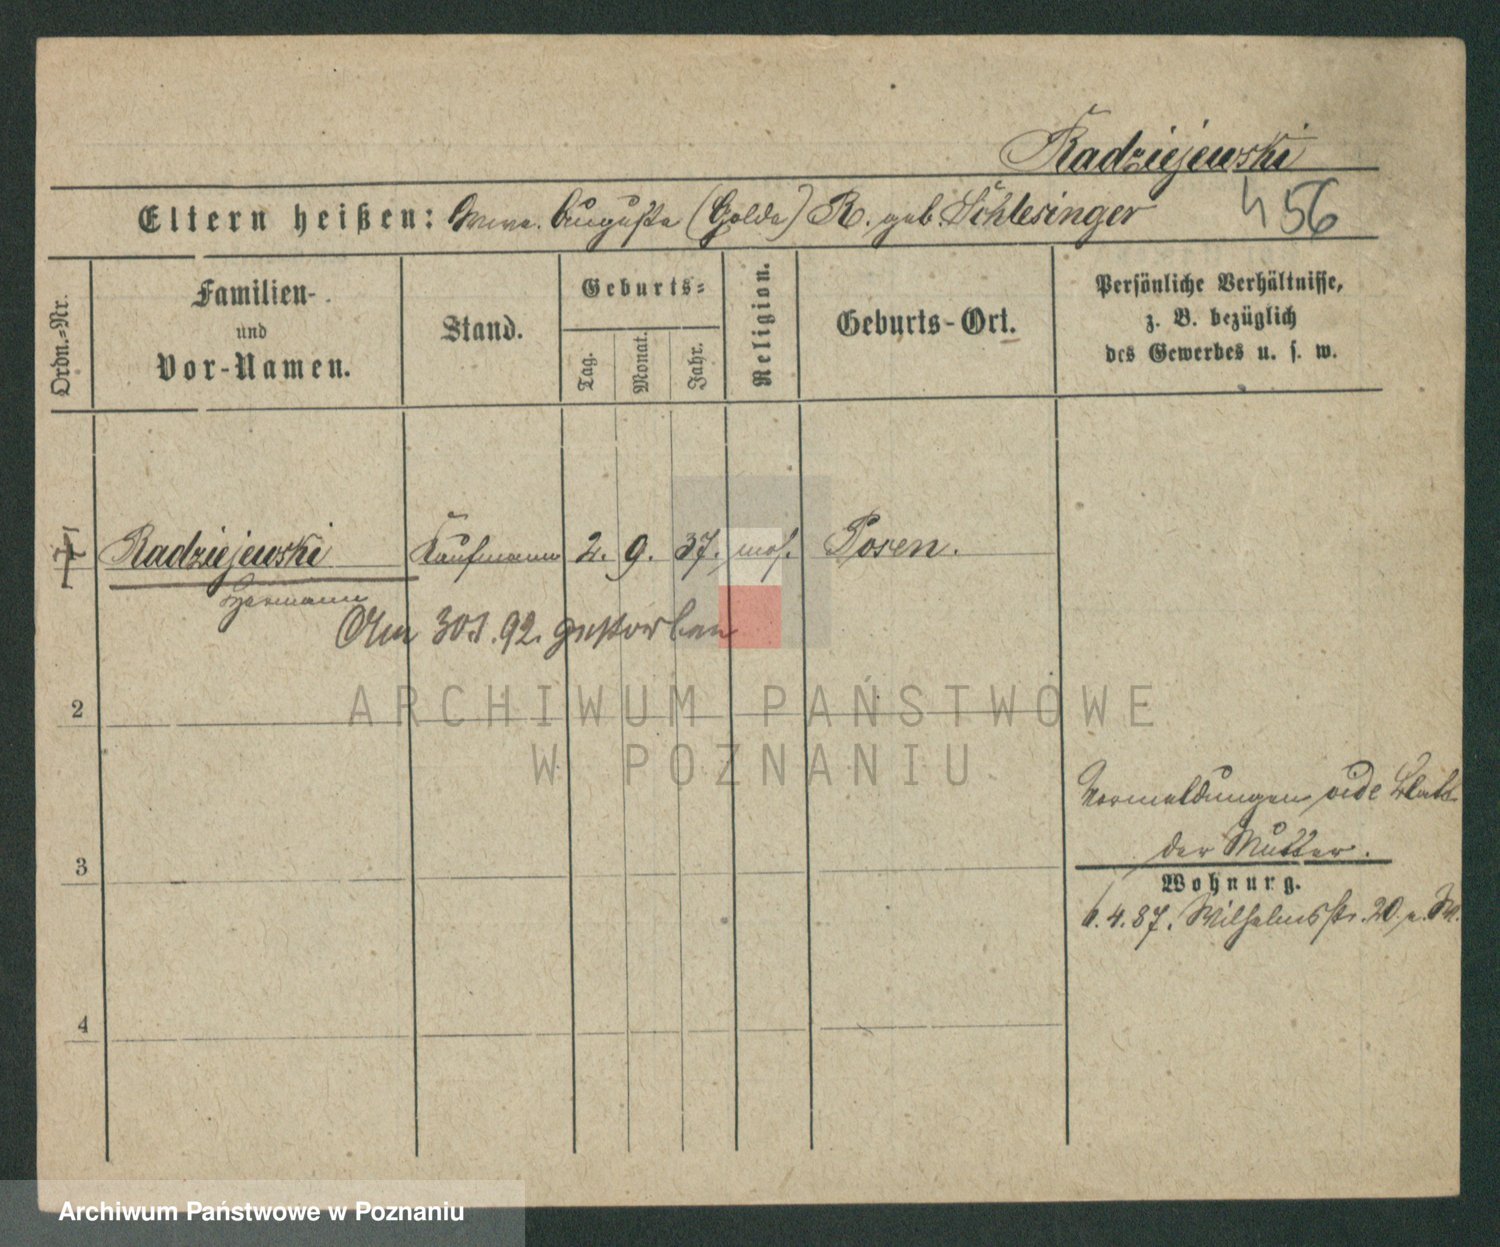 Radziejewski
456
Eltern heißen: Wwe. Auguste (Golda) R. geb. Schlesinger
Ordn.-Nr.
Familien-
und
Vor-Namen.
Stand.
Geburts-
Tag.
Monat.
Jahr.
Religion.
Geburts-Ort.
Persönliche Verhältnisse,
z. B. bezüglich
des Gewerbes u. s. w.
Radziejewski Kaufmann 2. 9. 37. mos. Posen.
Hermann
Am 30. 92. gestorben
2
ARCHIWUM PAŃSTWOWE
W POZNANIU
Vormeldungen vide Blatt
der Mutter.
3
Wohnung.
6.4.87. Wilhelmsstr. 20
4
Archiwum Państwowe w Poznaniu